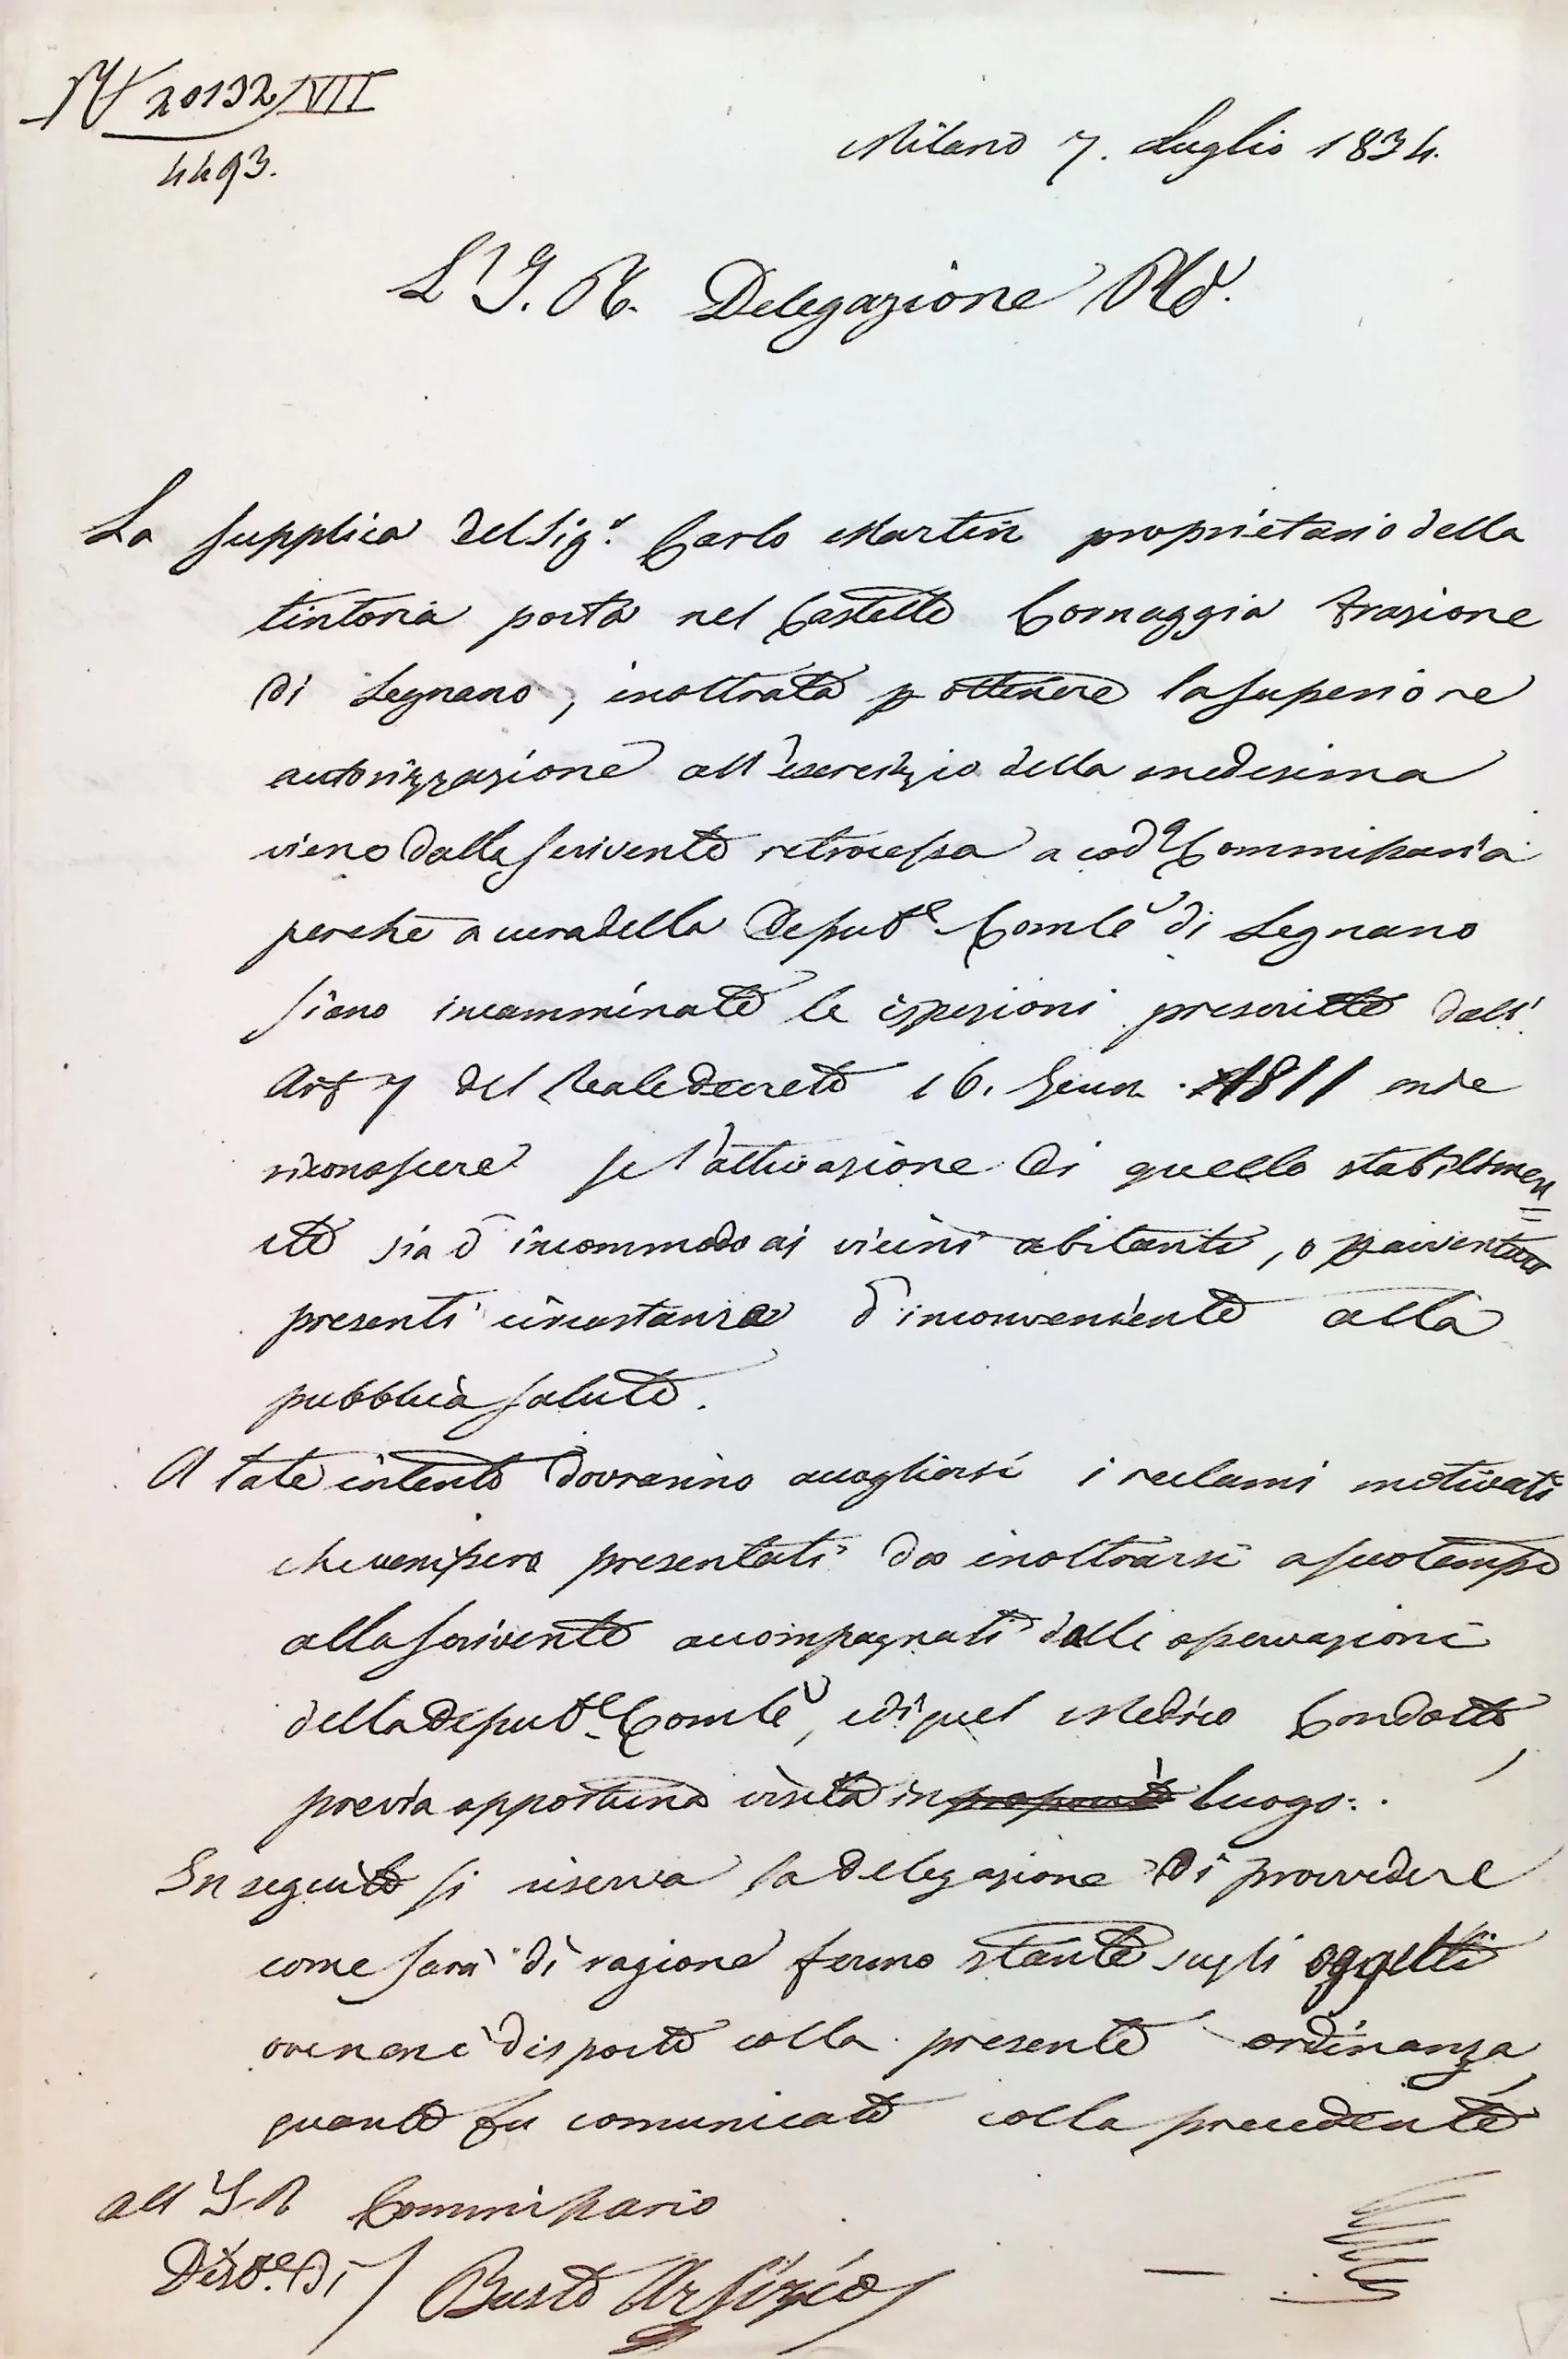 N° 20132/VII
4493.
Milano 7. Luglio 1834.
L'I. R. Delegazione Ple.
La supplica del Sigr. Carlo Martin proprietario della
tintoria posta nel Castello Cornaggia frazione
di Legnano, inoltrata p ottenere la superiore
autorizzazione all'esercizio della medesima
viene dalla scrivente retrocessa a coda Commissaria
perchè a cura della Depute Comle di Legnano
siano incamminate le ispezioni prescritte dall'
Art 7 del Reale Decreto 16. Genn. 1811 onde
riconoscere se l'attivazione di quello stabilimen=
to sia d'incommodo ai vicini abitanti, o
presenti circostanze d'inconveniente alla
pubblica salute.
A tale intento dovranno accogliersi i reclami motivati
che venissero presentati da inoltrarsi a suo tempo
alla scrivente accompagnati dalle osservazioni
della Depute Comle, e di quel Medico Condotto,
previa opportuna visita in luogo.
In seguito si riserva la delegazione di provvedere
come sarà di ragione fermo stante sugli oggetti
ove non è disposto colla presente ordinanza,
quanto fu comunicato colla precedente
All'I R Commissario
Distle di / Busto Arsizio /